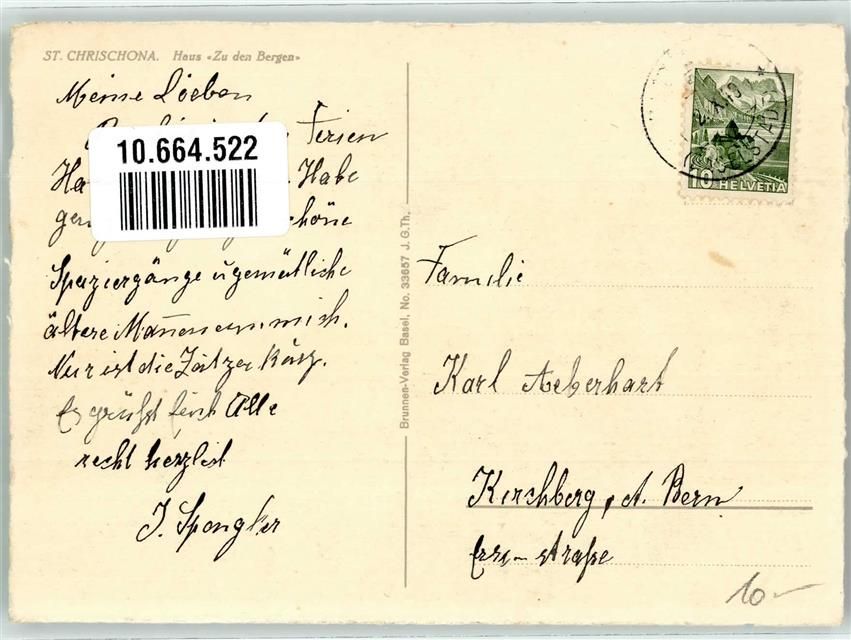 ST. CHRISCHONA. Haus «Zu den Bergen»
Meine Lieben
Ferien
10.664.522
Ha Habe
schöne
Spaziergänge u gemütliche
ältere Mannen um mich.
Nur ist die Zeit zu kurz.
Es grüßt Euch Alle
recht herzlich
J. Spengler
Brunnen-Verlag Basel, No. 33657 J.G.Th.
10 HELVETIA
Familie
Karl Aeberhart
Kirchberg, Kt. Bern
straße
10.-